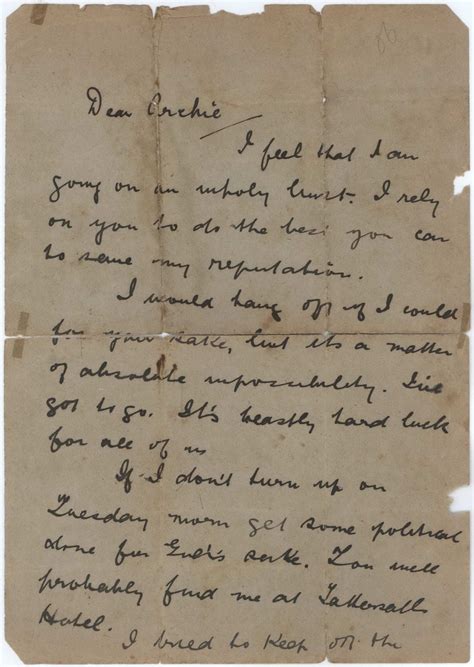 Dear Archie
I feel that I am
going on an unholy burst. I rely
on you to do the best you can
to save my reputation.
I would hang off if I could
for your sake, but its a matter
of absolute impossibility. I've
got to go. It's beastly hard luck
for all of us
If I don't turn up on
Tuesday morn get some political
done for God's sake. You will
probably find me at Tattersalls
Hotel.
I tried to keep off the